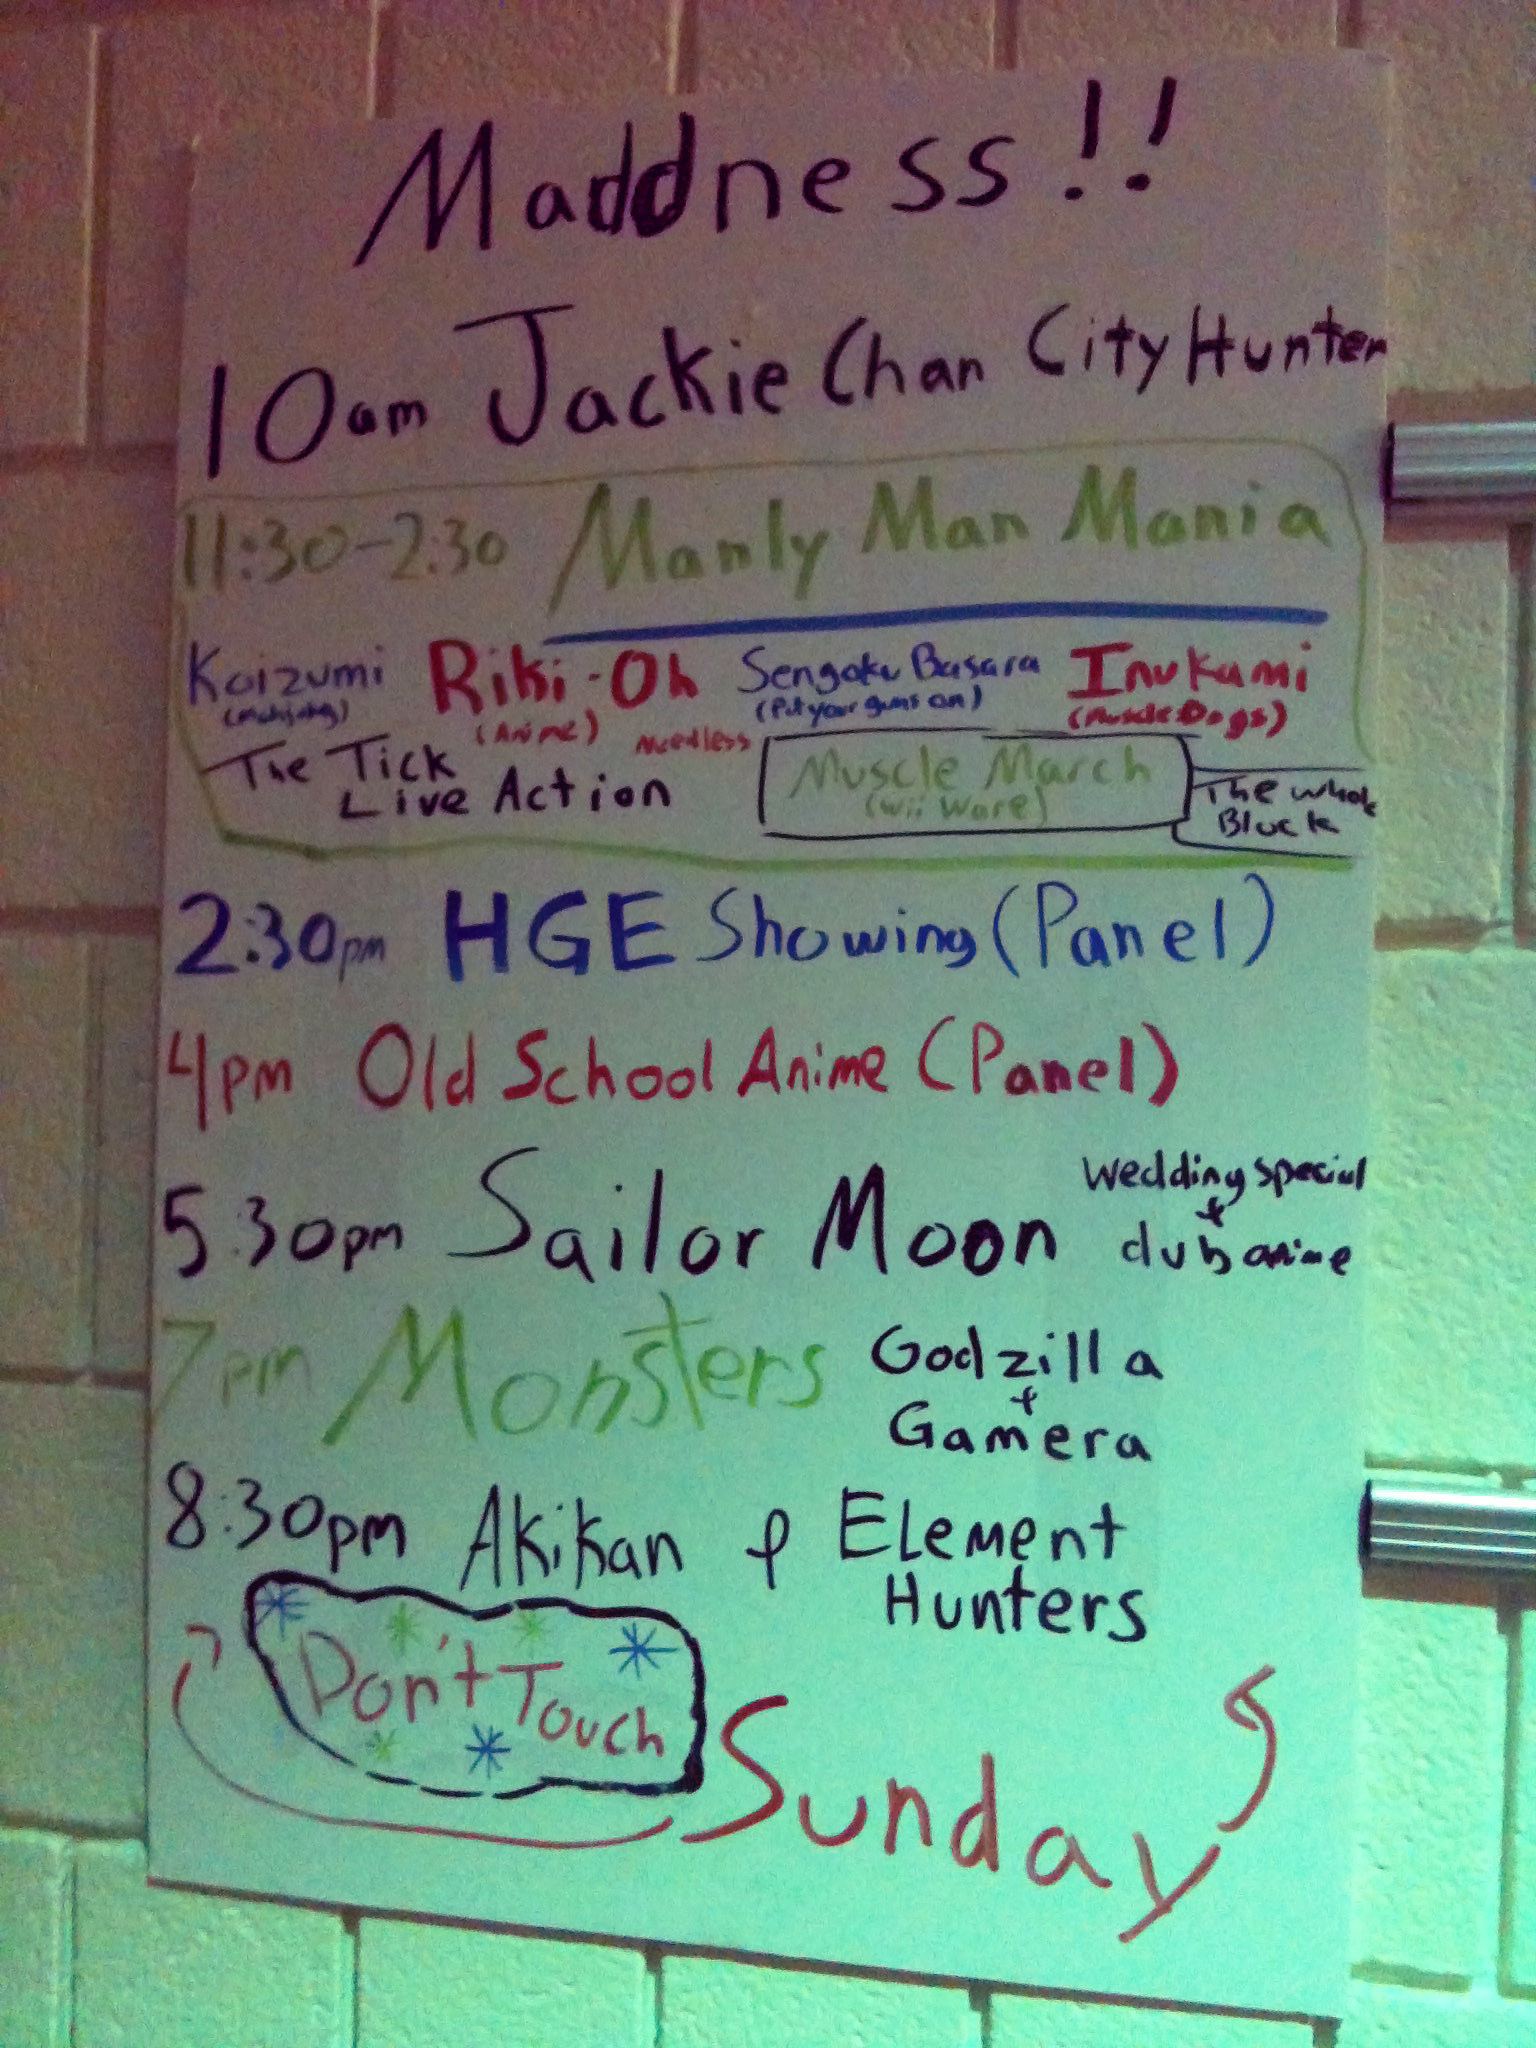 Maddness!!
10am Jackie Chan City Hunter
11:30-2:30 Manly Man Mania
Koizumi Riki-Oh Sengoku Basara Inukami
(Mahjong) (Anime) Needless (Put your guns on) (Muscle Dogs)
The Tick Live Action
Muscle March
(Wii Ware)
The whole
Block
2:30pm HGE Showing (Panel)
4pm Old School Anime (Panel)
5:30pm Sailor Moon Wedding special
+
dub anime
7pm Monsters Godzilla
+
Gamera
8:30pm Akikan & Element
Hunters
Don't Touch
Sunday